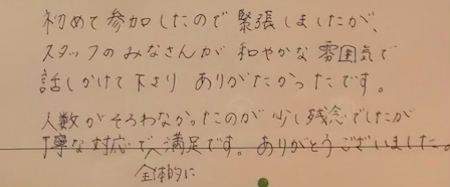 初めて参加したので緊張しましたが、
スタッフのみなさんが和やかな雰囲気で
話しかけて下さり ありがたかったです。
人数がそろわなかったのが少し残念でしたが
丁寧な対応で満足です。ありがとうございました。
全体的に